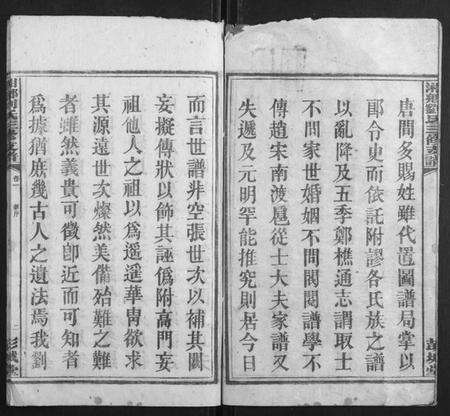 唐間多賜姓雖代置圖譜局掌以
郞令史而依託附謬各氏族之譜
以亂降及五季鄭樵通志謂取士
不問家世婚姻不問閥閱譜學不
傳趙宋南渡扈從士大夫家譜又
失遞及元明罕能推究則居今日
而言世譜非空張世次以補其闕
妄擬傳狀以飾其誣僞附高門妄
祖他人之祖以爲遥遥華胄欲求
其源遠世次燦然美備殆難之難
者雖然義貴可徵卽近而可知者
爲據猶庶幾古人之遺法焉我劉
彭城堂